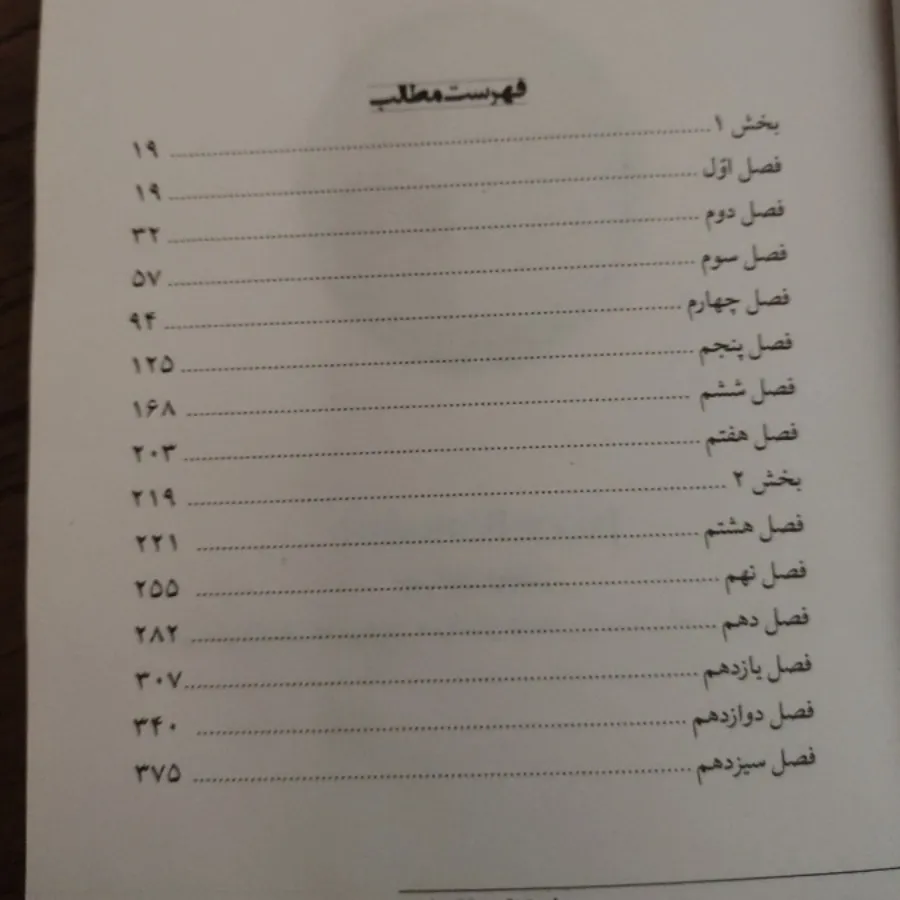 فهرست مطالب
بخش ۱ ........ ۱۹
فصل اوّل ........ ۱۹
فصل دوم ........ ۳۲
فصل سوم ........ ۵۷
فصل چهارم ........ ۹۴
فصل پنجم ........ ۱۲۵
فصل ششم ........ ۱۶۸
فصل هفتم ........ ۲۰۳
بخش ۲ ........ ۲۱۹
فصل هشتم ........ ۲۲۱
فصل نهم ........ ۲۵۵
فصل دهم ........ ۲۸۲
فصل یازدهم ........ ۳۰۷
فصل دوازدهم ........ ۳۴۰
فصل سیزدهم ........ ۳۷۵